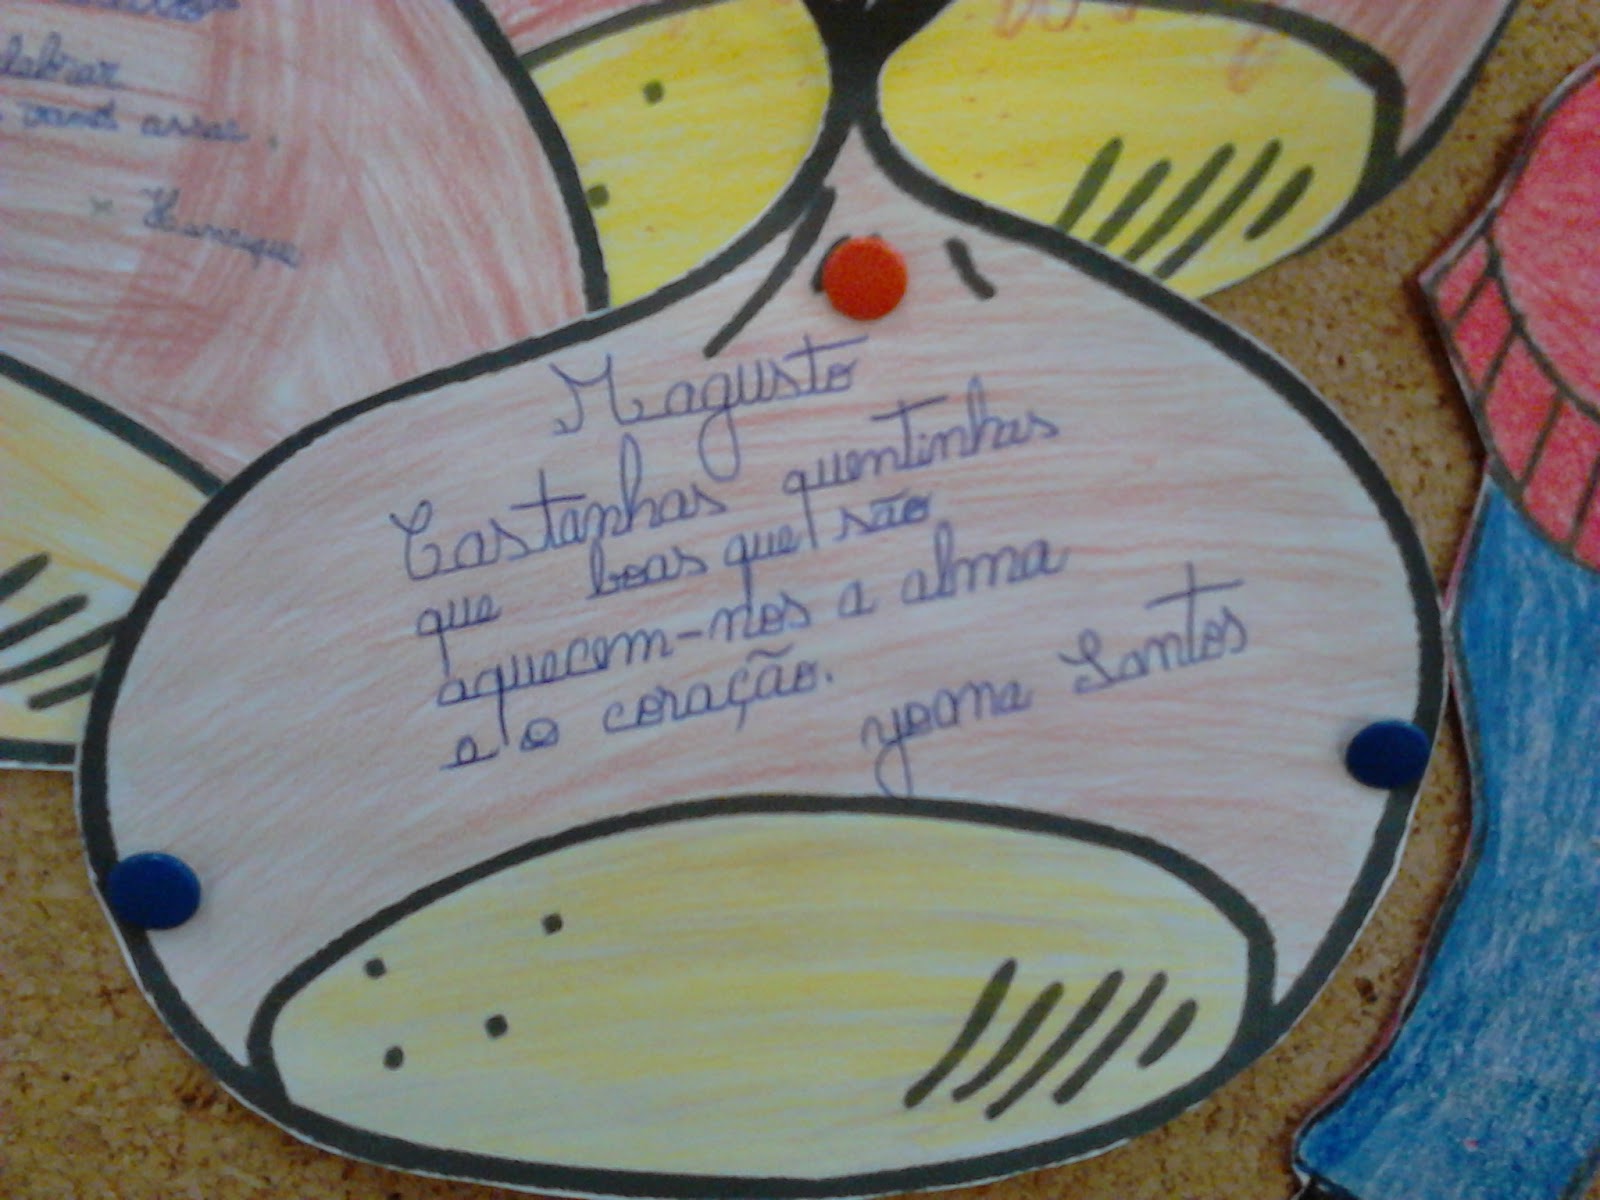 labrar
Henrique
Magusto
Castanhas quentinhas
que boas que são
aquecem-nos a alma
e o coração.
yoana Santos